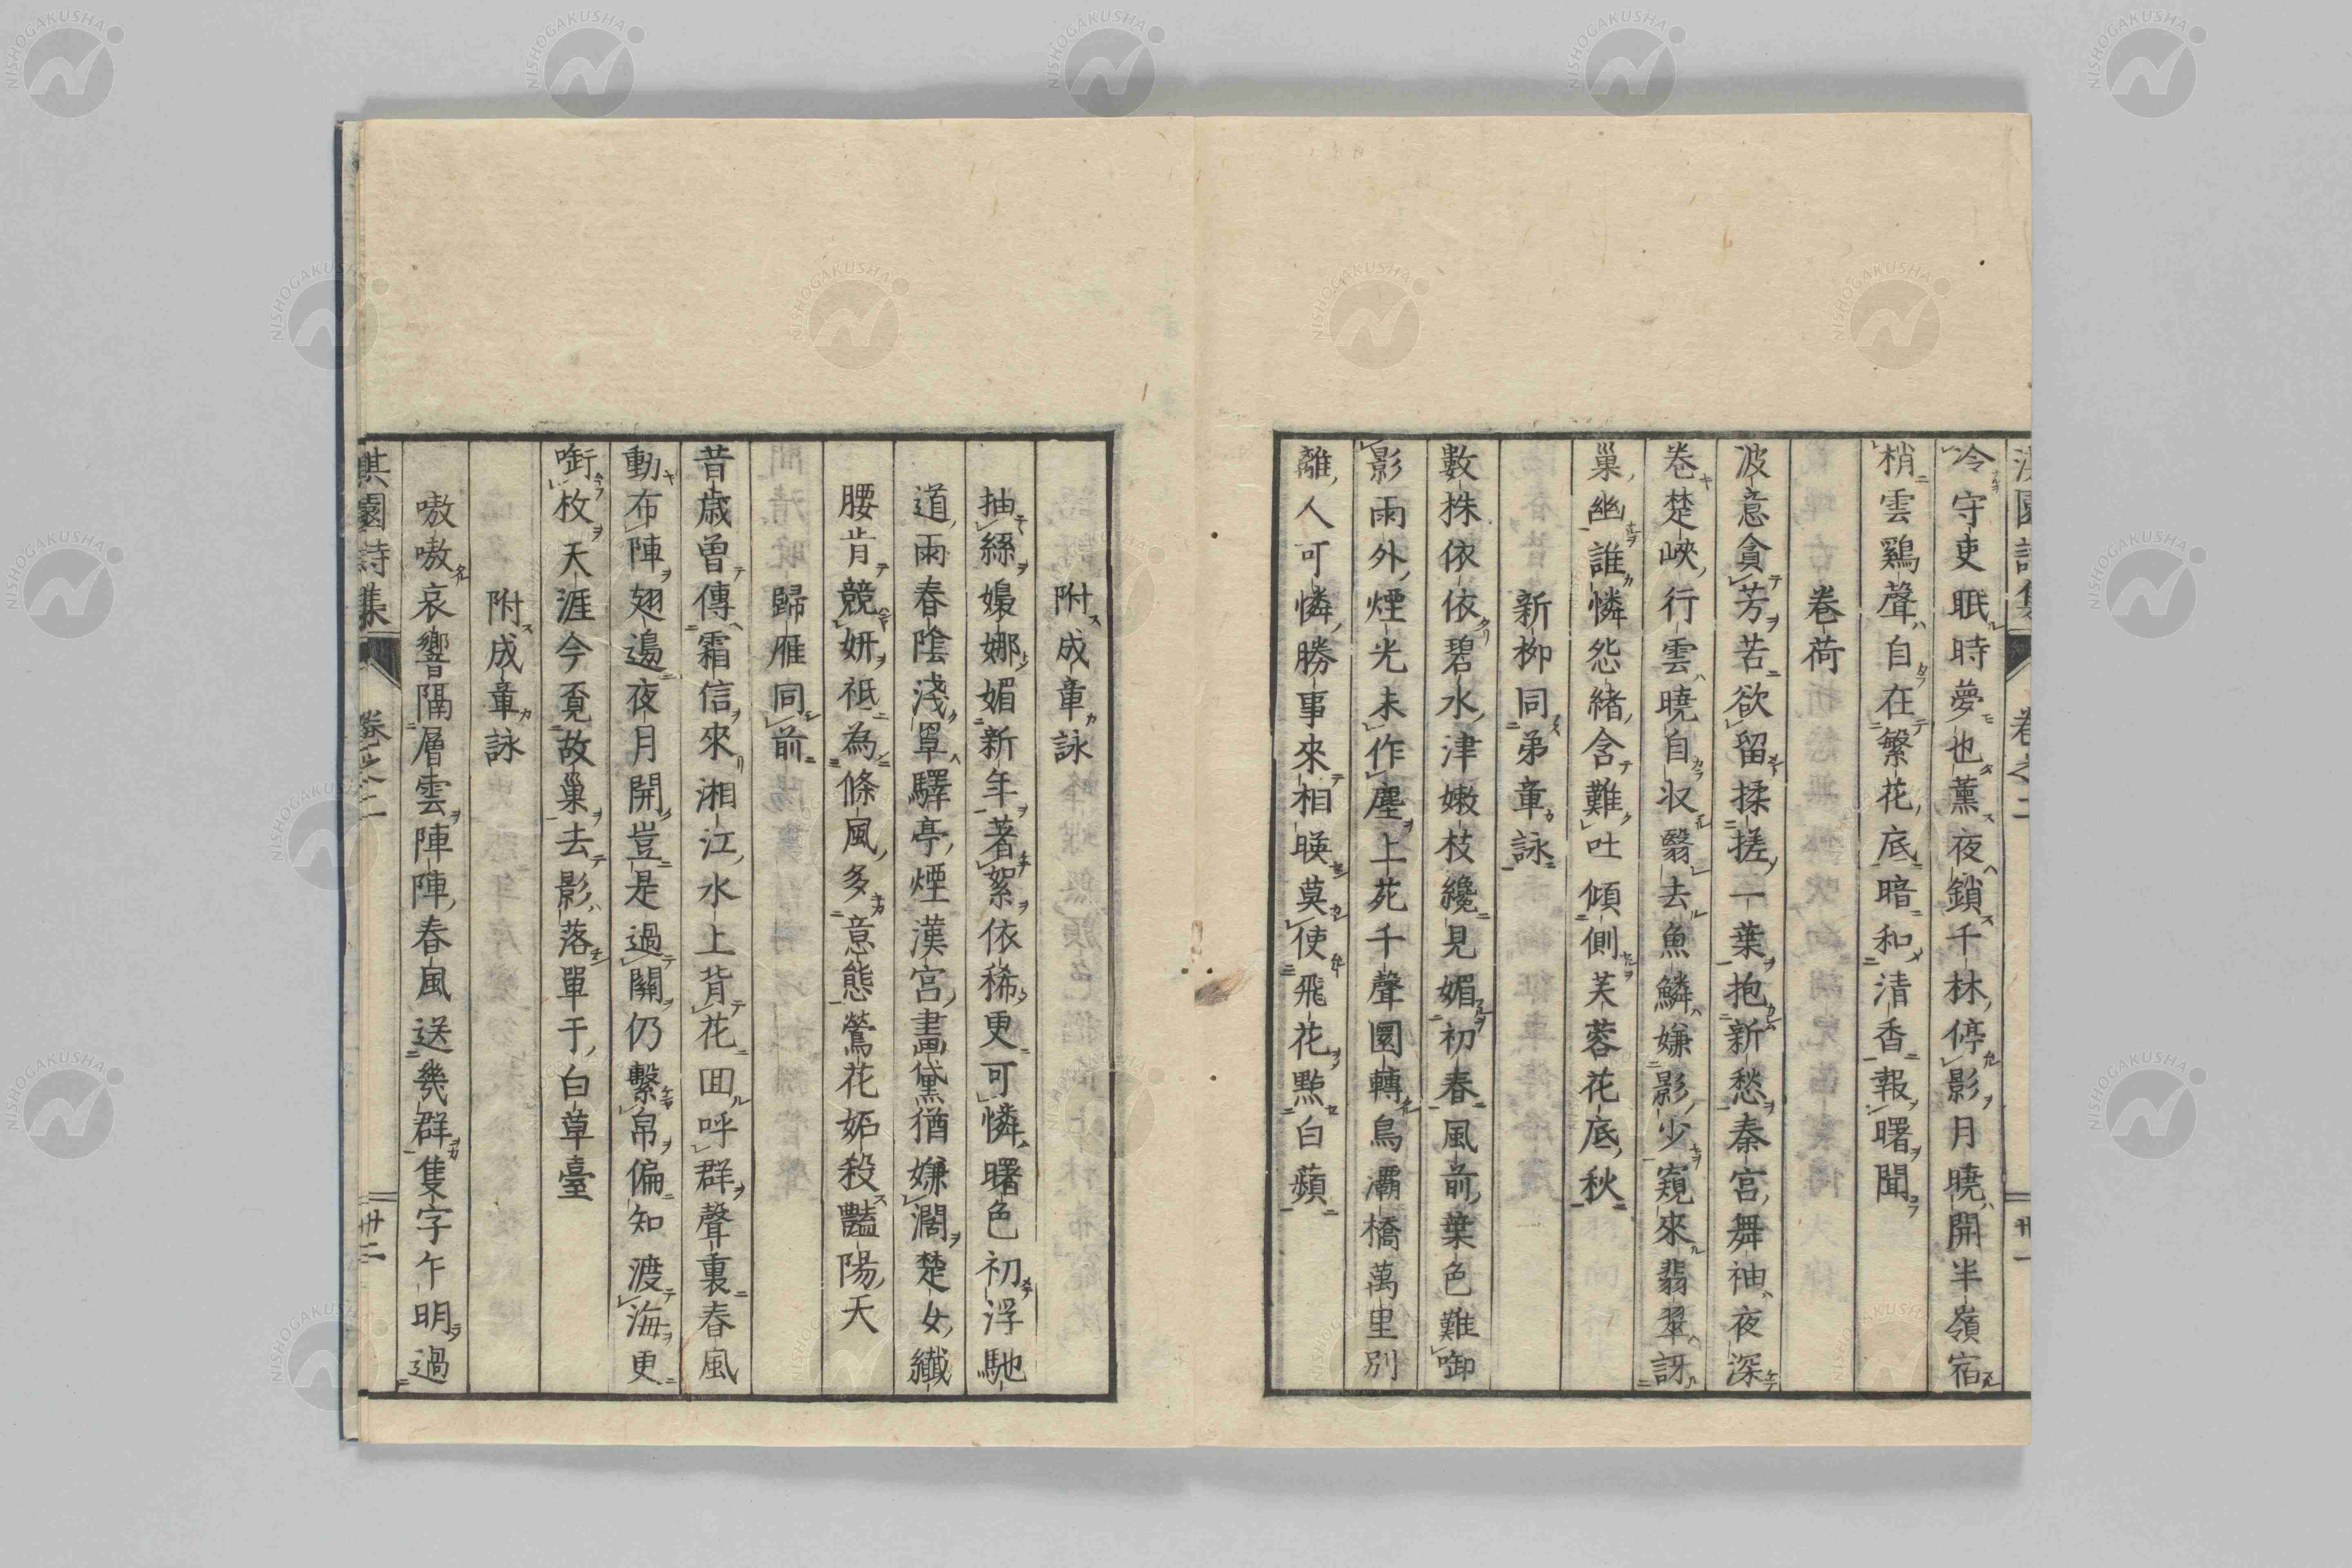 冷守吏眠時夢也薰夜鎖千林停影月曉開半嶺宿
梢雲鷄聲自在繁花底暗和清香報曙聞
卷荷
波意貪芳苦欲留揉搓一葉抱新愁秦宮舞袖夜深
卷楚峽行雲曉自収翳去魚鱗嫌影少窺來翡翠訝
巢幽誰憐怨緒含難吐傾側芙蓉花底秋
新柳同弟章詠
數株依依碧水津嫩枝纔見媚初春風前葉色難啣
影雨外煙光未作塵上苑千聲囀轉鳥灞橋萬里別
離人可憐勝事來相暎莫使飛花點白蘋
附成章詠
抽絲嫋娜媚新年著絮依稀更可憐曙色初浮馳
道雨春陰淺罩驛亭煙漢宮畫黛猶嫌濶楚女纎
腰肯競妍祇為條風多意態鶯花妬殺豔陽天
歸雁同前
昔歳曾傳霜信來湘江水上背花回呼群聲裏春風
動布陣翅邊夜月開豈是過關仍繫帛偏知渡海更
啣枚天涯今覔故巢去影落單于白草臺
附成章詠
嗷嗷哀響隔層雲陣陣春風送幾群隻字乍明過
淇園詩集
卷之二
卅一
淇園詩集
卷之二
卅二
NISHOGAKUSHA